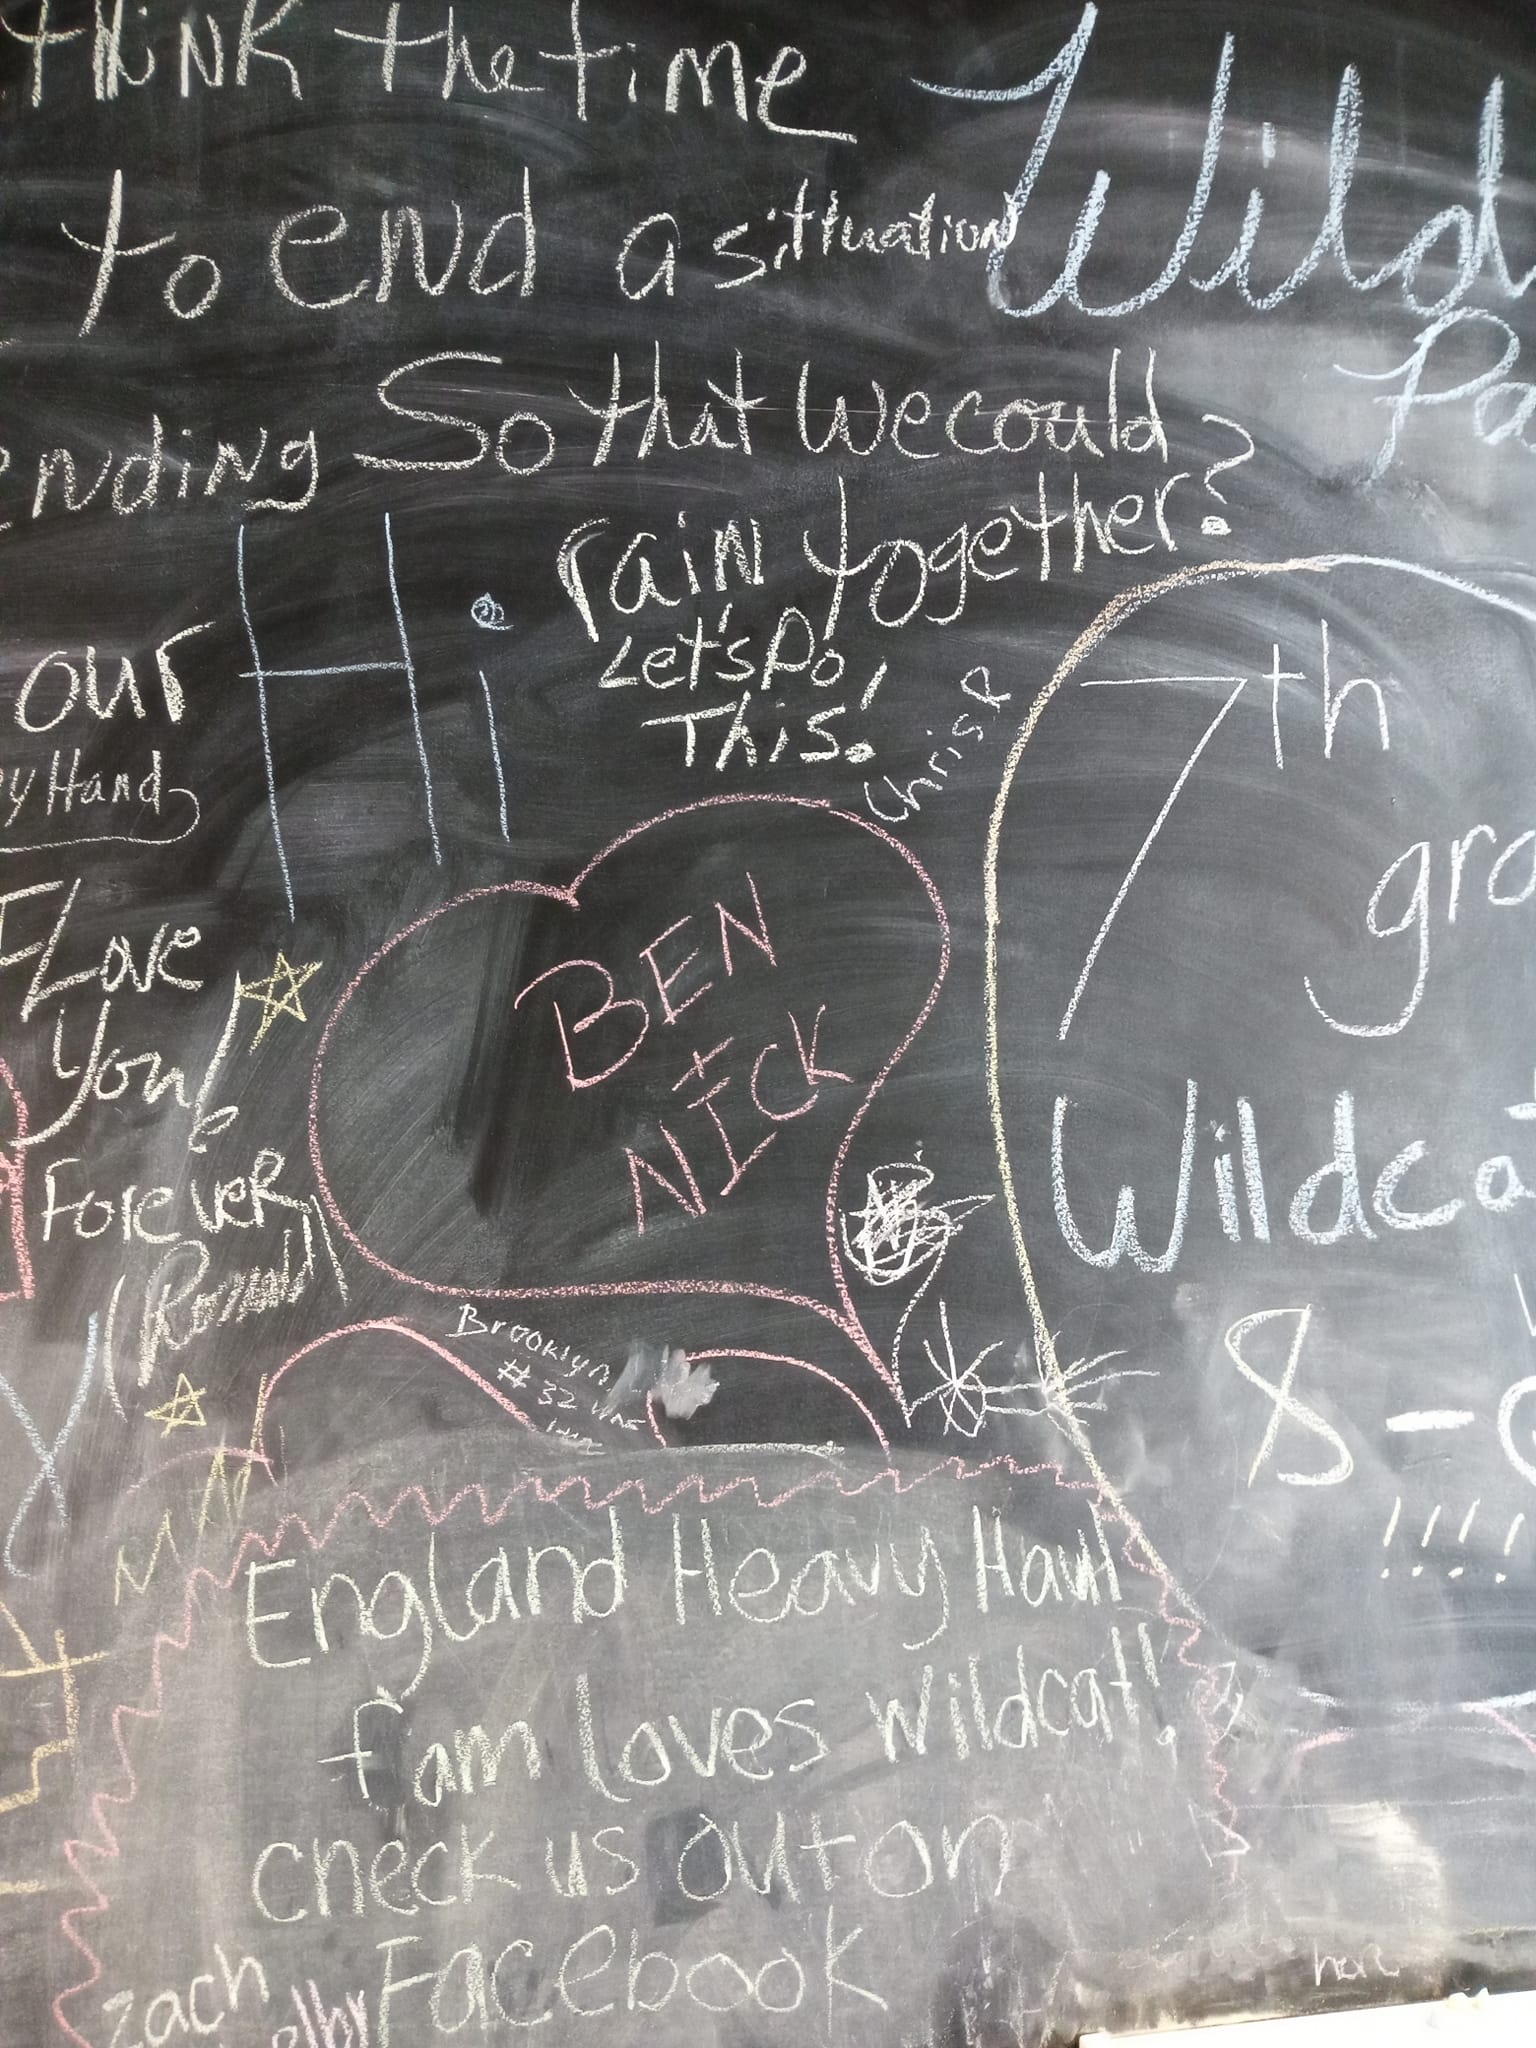 think the time
to end a sittuation
ending So that we could
rain together?
Let's Do
This!
Chris P
Wild
Pa
Hi
our
y Hand
I Love
You
Forever
BEN
+
NICK
Brooklyn
#32
7th
gra
Wildcat
8-
!!!!
England Heavy Haul
fam loves wildcat!
check us out on
Facebook
Zach